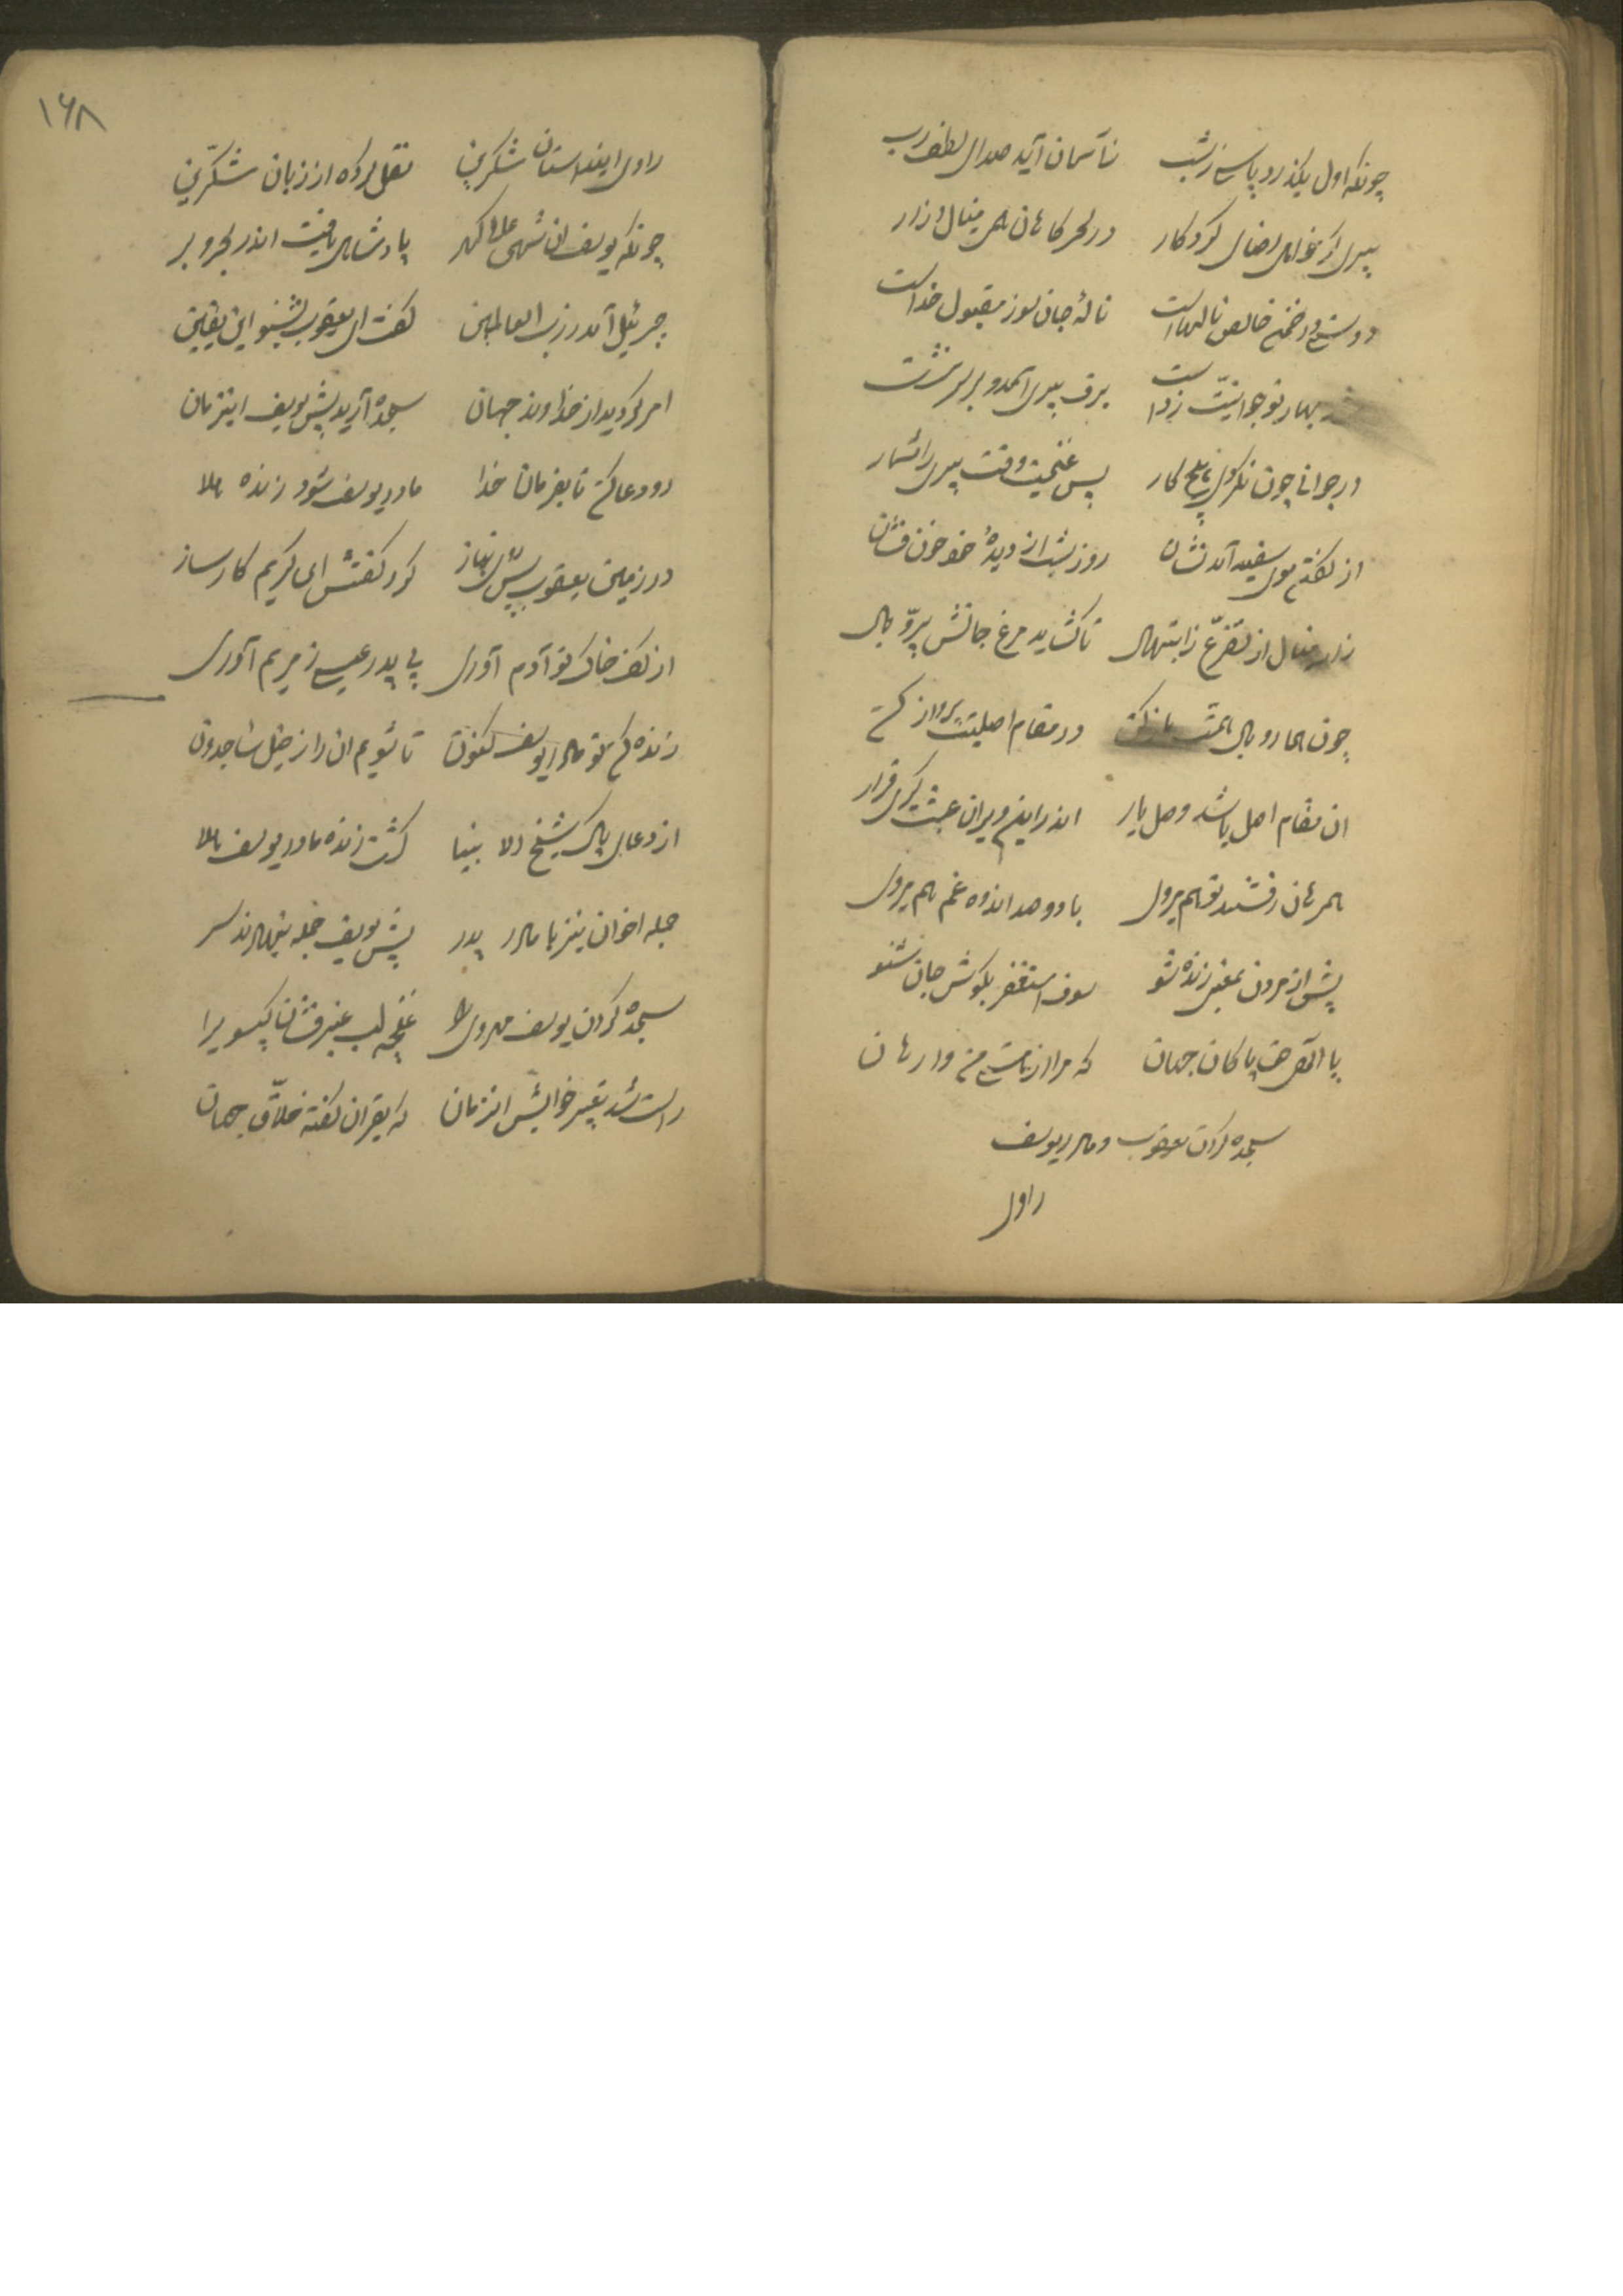 چونکه اول بگذرد پاسی ز شب ز آسمان آید صدای لطف رب
پیری ار خواهی رضای کردکار در سحر کاهان همی مینال و زار
دوستی در ضمن خالص نالهاست نالهٔ جان سوز مقبول خداست
بهار نوجوانیت ز دست برف پیری آمد و بر سر نشست
در جوانی چون نکردی هیچ کار پس غنیمت وقت پیری را شمار
از کفن موی سفید آمد نشان روز و شب از دیدهٔ خود خون فشان
زار مینال از تضرع ز ابتهال تا کشاید مرغ جانش پر و بال
چون هما رو بال همت باز کن در مقام اصلیت پرواز کن
ان مقام اصل باشد وصل یار اندر این ویران عبث کیری قرار
همرهان رفتند تو هم میروی با دو صد اندوه غم هم میروی
پیش از مردن بمعنی زنده شو سوف استغفر بکوش جان شنو
یا الهی حق پاکان جهان که مرا از هستی من وارهان
سجده کردن یعقوب و مادر یوسف
راوی
۱۶۸
راوی اینداستان شکرین نقل کرده از زبان شکّرین
چونکه یوسف ان شهی عالی کهر پادشاهی یافت اندر بحر و بر
جبرئیل آمد ز رب العالمین کفت ای یعقوب بشنو این یقین
امر کردید از خداوند جهان سجده آرید پیش یوسف اینزمان
رو دعا کن تا بفرمان خدا مادر یوسف شود زنده هلا
در زمین یعقوب پس روی نیاز کرد کفتش ای کریم کارساز
از کف خاک تو آدم آوری بی پدر عیسی ز مریم آوری
زنده کن تو مادر یوسف کنون تا شویم ان را ز خیل ساجدون
از دعای پاک شیخ دلا بینا کشت زنده مادر یوسف هلا
جمله اخوان نیز با مادر پدر پیش یوسف جمله بنهادند سر
سجده کردن یوسف مهروی را غنچه لب عنبر فشان کیسو یرا
راست شد تعبیر خوابش انزمان که بقران کفته خلّاق جهان